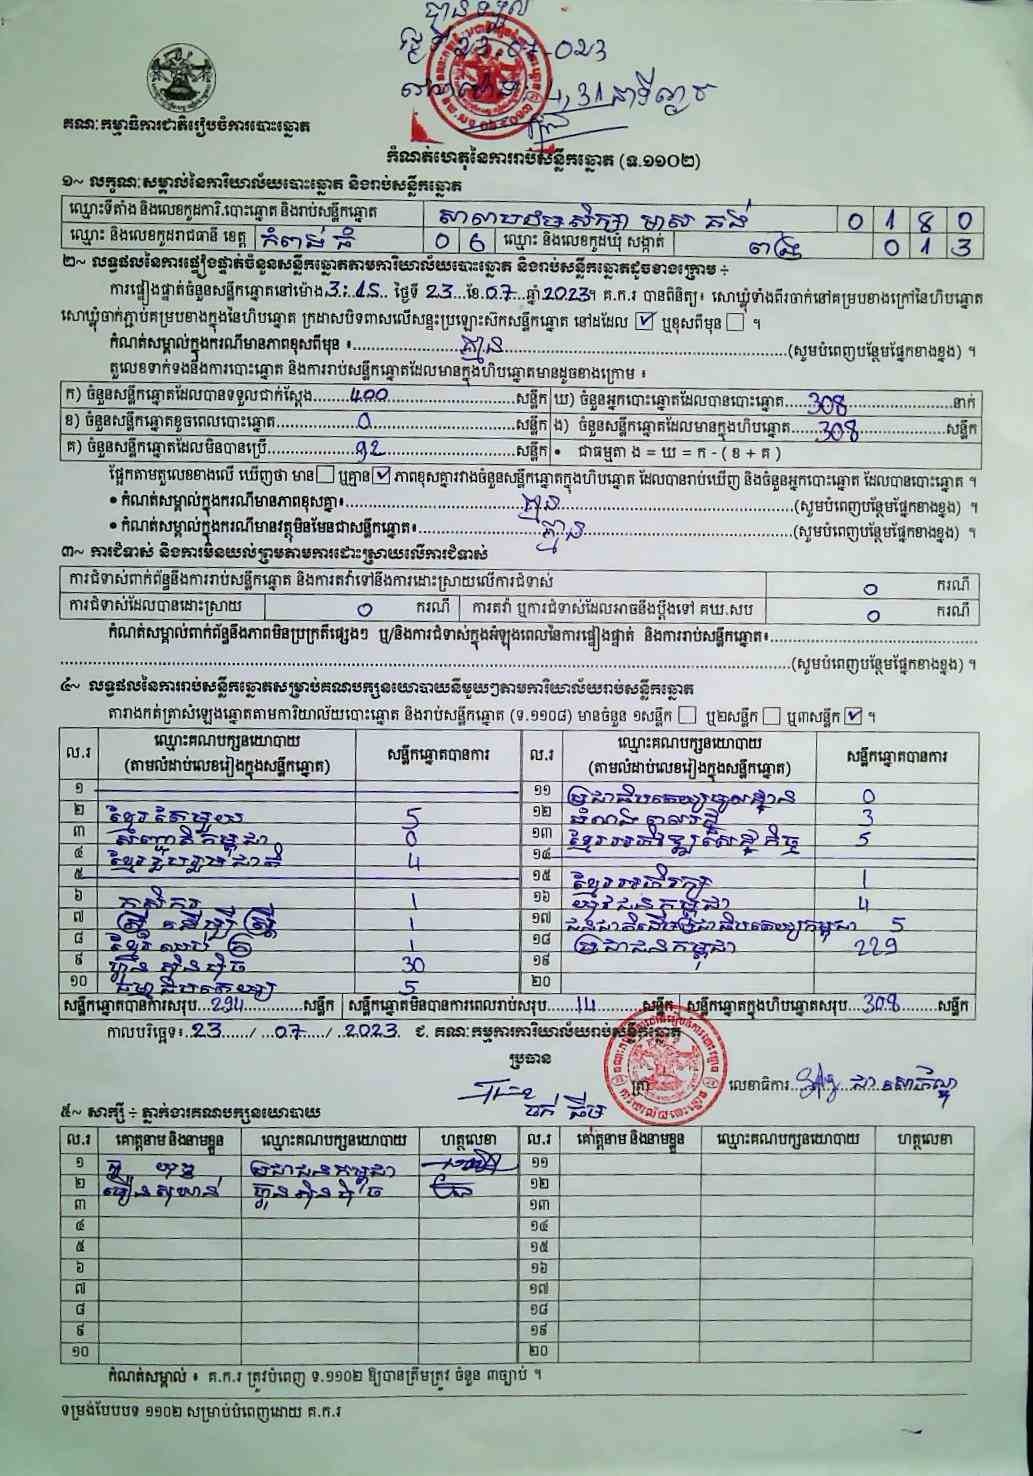 បានទទួល
ថ្ងៃ 23.07.023
គណៈកម្មាធិការជាតិរៀបចំការបោះឆ្នោត
កំណត់ហេតុនៃការរាប់សន្លឹកឆ្នោត (ទ.១១០២)
១~ លក្ខណៈសម្គាល់នៃការិយាល័យបោះឆ្នោត និងរាប់សន្លឹកឆ្នោត
ឈ្មោះទីតាំង និងលេខកូដការិ.បោះឆ្នោត និងរាប់សន្លឹកឆ្នោត សាលាបឋមសិក្សា មាស គង់ 0 1 8 0
ឈ្មោះ និងលេខកូដរាជធានី ខេត្ត កំពង់ធំ 0 6 ឈ្មោះ និងលេខកូដឃុំ សង្កាត់ 0 1 3
២~ លទ្ធផលនៃការផ្ទៀងផ្ទាត់ចំនួនសន្លឹកឆ្នោតតាមការិយាល័យបោះឆ្នោត និងរាប់សន្លឹកឆ្នោតដូចខាងក្រោម ÷
ការផ្ទៀងផ្ទាត់ចំនួនសន្លឹកឆ្នោតនៅម៉ោង 3:15 ថ្ងៃទី 23 ខែ 07 ឆ្នាំ 2023។ គ.ក.រ បានពិនិត្យ៖ សោឃ្លុំទាំងពីរចាក់នៅគម្របខាងក្រៅនៃហិបឆ្នោត
សោឃ្លុំចាក់ភ្ជាប់គម្របខាងក្នុងនៃហិបឆ្នោត ក្រដាសបិទពាសលើសន្ទះប្រឡោះស៊កសន្លឹកឆ្នោត នៅដដែល ☑ ឬខុសពីមុន ☐ ។
កំណត់សម្គាល់ក្នុងករណីមានភាពខុសពីមុន ៖ គ្មាន (សូមបំពេញបន្ថែមផ្នែកខាងខ្នង) ។
តួលេខទាក់ទងនឹងការបោះឆ្នោត និងការរាប់សន្លឹកឆ្នោតដែលមានក្នុងហិបឆ្នោតមានដូចខាងក្រោម ៖
ក) ចំនួនសន្លឹកឆ្នោតដែលបានទទួលជាក់ស្តែង 400 សន្លឹក ឃ) ចំនួនអ្នកបោះឆ្នោតដែលបានបោះឆ្នោត 308 នាក់
ខ) ចំនួនសន្លឹកឆ្នោតខូចពេលបោះឆ្នោត 0 សន្លឹក ង) ចំនួនសន្លឹកឆ្នោតដែលមានក្នុងហិបឆ្នោត 308 សន្លឹក
គ) ចំនួនសន្លឹកឆ្នោតដែលមិនបានប្រើ 92 សន្លឹក • ជាធម្មតា ង = ឃ = ក - ( ខ + គ )
ផ្អែកតាមតួលេខខាងលើ ឃើញថា មាន ☐ ឬគ្មាន ☑ ភាពខុសគ្នារវាងចំនួនសន្លឹកឆ្នោតក្នុងហិបឆ្នោត ដែលបានរាប់ឃើញ និងចំនួនអ្នកបោះឆ្នោត ដែលបានបោះឆ្នោត ។
• កំណត់សម្គាល់ក្នុងករណីមានភាពខុសគ្នា៖ គ្មាន (សូមបំពេញបន្ថែមផ្នែកខាងខ្នង) ។
• កំណត់សម្គាល់ក្នុងករណីមានវត្ថុមិនមែនជាសន្លឹកឆ្នោត៖ គ្មាន (សូមបំពេញបន្ថែមផ្នែកខាងខ្នង) ។
៣~ ការជំទាស់ និងការមិនយល់ព្រមតាមការដោះស្រាយលើការជំទាស់
ការជំទាស់ពាក់ព័ន្ធនឹងការរាប់សន្លឹកឆ្នោត និងការតវ៉ាទៅនឹងការដោះស្រាយលើការជំទាស់ 0 ករណី
ការជំទាស់ដែលបានដោះស្រាយ 0 ករណី ការតវ៉ា ឬការជំទាស់ដែលអាចនឹងប្តឹងទៅ គឃ.សប 0 ករណី
កំណត់សម្គាល់ពាក់ព័ន្ធនឹងភាពមិនប្រក្រតីផ្សេងៗ ឬ/និងការជំទាស់ក្នុងអំឡុងពេលនៃការផ្ទៀងផ្ទាត់ និងការរាប់សន្លឹកឆ្នោត៖
(សូមបំពេញបន្ថែមផ្នែកខាងខ្នង) ។
៤~ លទ្ធផលនៃការរាប់សន្លឹកឆ្នោតសម្រាប់គណបក្សនយោបាយនីមួយៗតាមការិយាល័យរាប់សន្លឹកឆ្នោត
តារាងកត់ត្រាសំឡេងឆ្នោតតាមការិយាល័យបោះឆ្នោត និងរាប់សន្លឹកឆ្នោត (ទ.១១០៨) មានចំនួន ១សន្លឹក ☐ ឬ២សន្លឹក ☐ ឬ៣សន្លឹក ☑ ។
ល.រ ឈ្មោះគណបក្សនយោបាយ (តាមលំដាប់លេខរៀងក្នុងសន្លឹកឆ្នោត) សន្លឹកឆ្នោតបានការ ល.រ ឈ្មោះគណបក្សនយោបាយ (តាមលំដាប់លេខរៀងក្នុងសន្លឹកឆ្នោត) សន្លឹកឆ្នោតបានការ
១ ១១ ប្រជាធិបតេយ្យមូលដ្ឋាន 0
២ ខ្មែរតែមួយ 5 ១២ 3
៣ សញ្ជាតិកម្ពុជា 0 ១៣ ខ្មែរអភិវឌ្ឍសេដ្ឋកិច្ច 5
៤ ខ្មែររួបរួមជាតិ 4 ១៤
៥ ១៥ ខ្មែរអភិរក្ស 1
៦ កសិករ 1 ១៦ យុវជនកម្ពុជា 4
៧ ស្ត្រីដើម្បីស្ត្រី 1 ១៧ ជនជាតិដើមប្រជាធិបតេយ្យកម្ពុជា 5
៨ ខ្មែរឈប់ក្រ 1 ១៨ ប្រជាជនកម្ពុជា 229
៩ ហ៊្វុនស៊ិនប៉ិច 30 ១៩
១០ ធម្មាធិបតេយ្យ 5 ២០
សន្លឹកឆ្នោតបានការសរុប 294 សន្លឹក សន្លឹកឆ្នោតមិនបានការពេលរាប់សរុប 14 សន្លឹក សន្លឹកឆ្នោតក្នុងហិបឆ្នោតសរុប 308 សន្លឹក
កាលបរិច្ឆេទ៖ 23 / 07 / 2023 ជ. គណៈកម្មការការិយាល័យរាប់សន្លឹកឆ្នោត
ប្រធាន
ត្រា លេខាធិការ
៥~ សាក្សី ÷ ភ្នាក់ងារគណបក្សនយោបាយ
ល.រ គោត្តនាម និងនាមខ្លួន ឈ្មោះគណបក្សនយោបាយ ហត្ថលេខា ល.រ គោត្តនាម និងនាមខ្លួន ឈ្មោះគណបក្សនយោបាយ ហត្ថលេខា
១ ប្រជាជនកម្ពុជា ១១
២ ហ៊្វុនស៊ិនប៉ិច ១២
៣ ១៣
៤ ១៤
៥ ១៥
៦ ១៦
៧ ១៧
៨ ១៨
៩ ១៩
១០ ២០
កំណត់សម្គាល់ ៖ គ.ក.រ ត្រូវបំពេញ ទ.១១០២ ឱ្យបានត្រឹមត្រូវ ចំនួន ៣ច្បាប់ ។
ទម្រង់បែបបទ ១១០២ សម្រាប់បំពេញដោយ គ.ក.រ